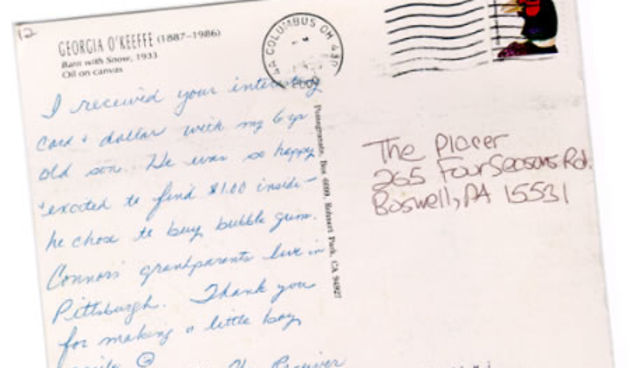 12
GEORGIA O'KEEFFE (1887–1986)
Barn with Snow, 1933
Oil on canvas
I received your interesting
card + dollar with my 6 yr
old son. He was so happy
+ excited to find $1.00 inside –
he chose to buy bubble gum.
Connors' grandparents live in
Pittsburgh. Thank you
for making a little boy
smile ☺
The Receiver
Pomegranate, Box 6099, Rohnert Park, CA 94927
COLUMBUS OH
The Placer
265 Four Seasons Rd.
Boswell, PA 15531